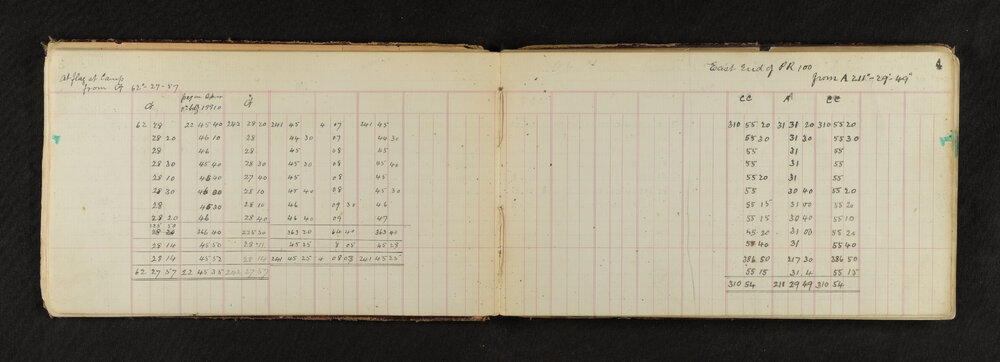 at flag at Camp
from A 62°-27-57
A
62 28 22 45 40 242 28 20 241 45 4 07 241 45
28 20 46 10 28 44 30 07 44 30
28 46 28 45 08 45
28 30 45 40 28 30 45 30 08 45 40
28 10 45 40 27 40 45 08 45
28 30 28 10 45 40 08 45 30
28 45 30 28 10 46 09 30 46
28 20 46 28 40 46 40 09 47
366 40 225 30 363 20 64 40 363 40
28 14 45 50 28 11 45 25 8 05 45 28
28 14 45 52 28 14 241 45 25 4 08 08 241 45 25
62 27 57 22 45 35 242 27 57
4
East End of PR 100
from A 211°-29'-49"
CC A' CC
310 55 20 31 31 20 310 55 20
55 30 31 30 55 30
55 31 55
55 31 55
55 20 31 55
55 30 40 55 20
55 15 31 00 55 20
55 15 30 40 55 10
55 20 31 00 55 20
55 40 31 55 40
386 50 217 30 386 50
55 15 31.4 55 15
310 54 211 29 49 310 54